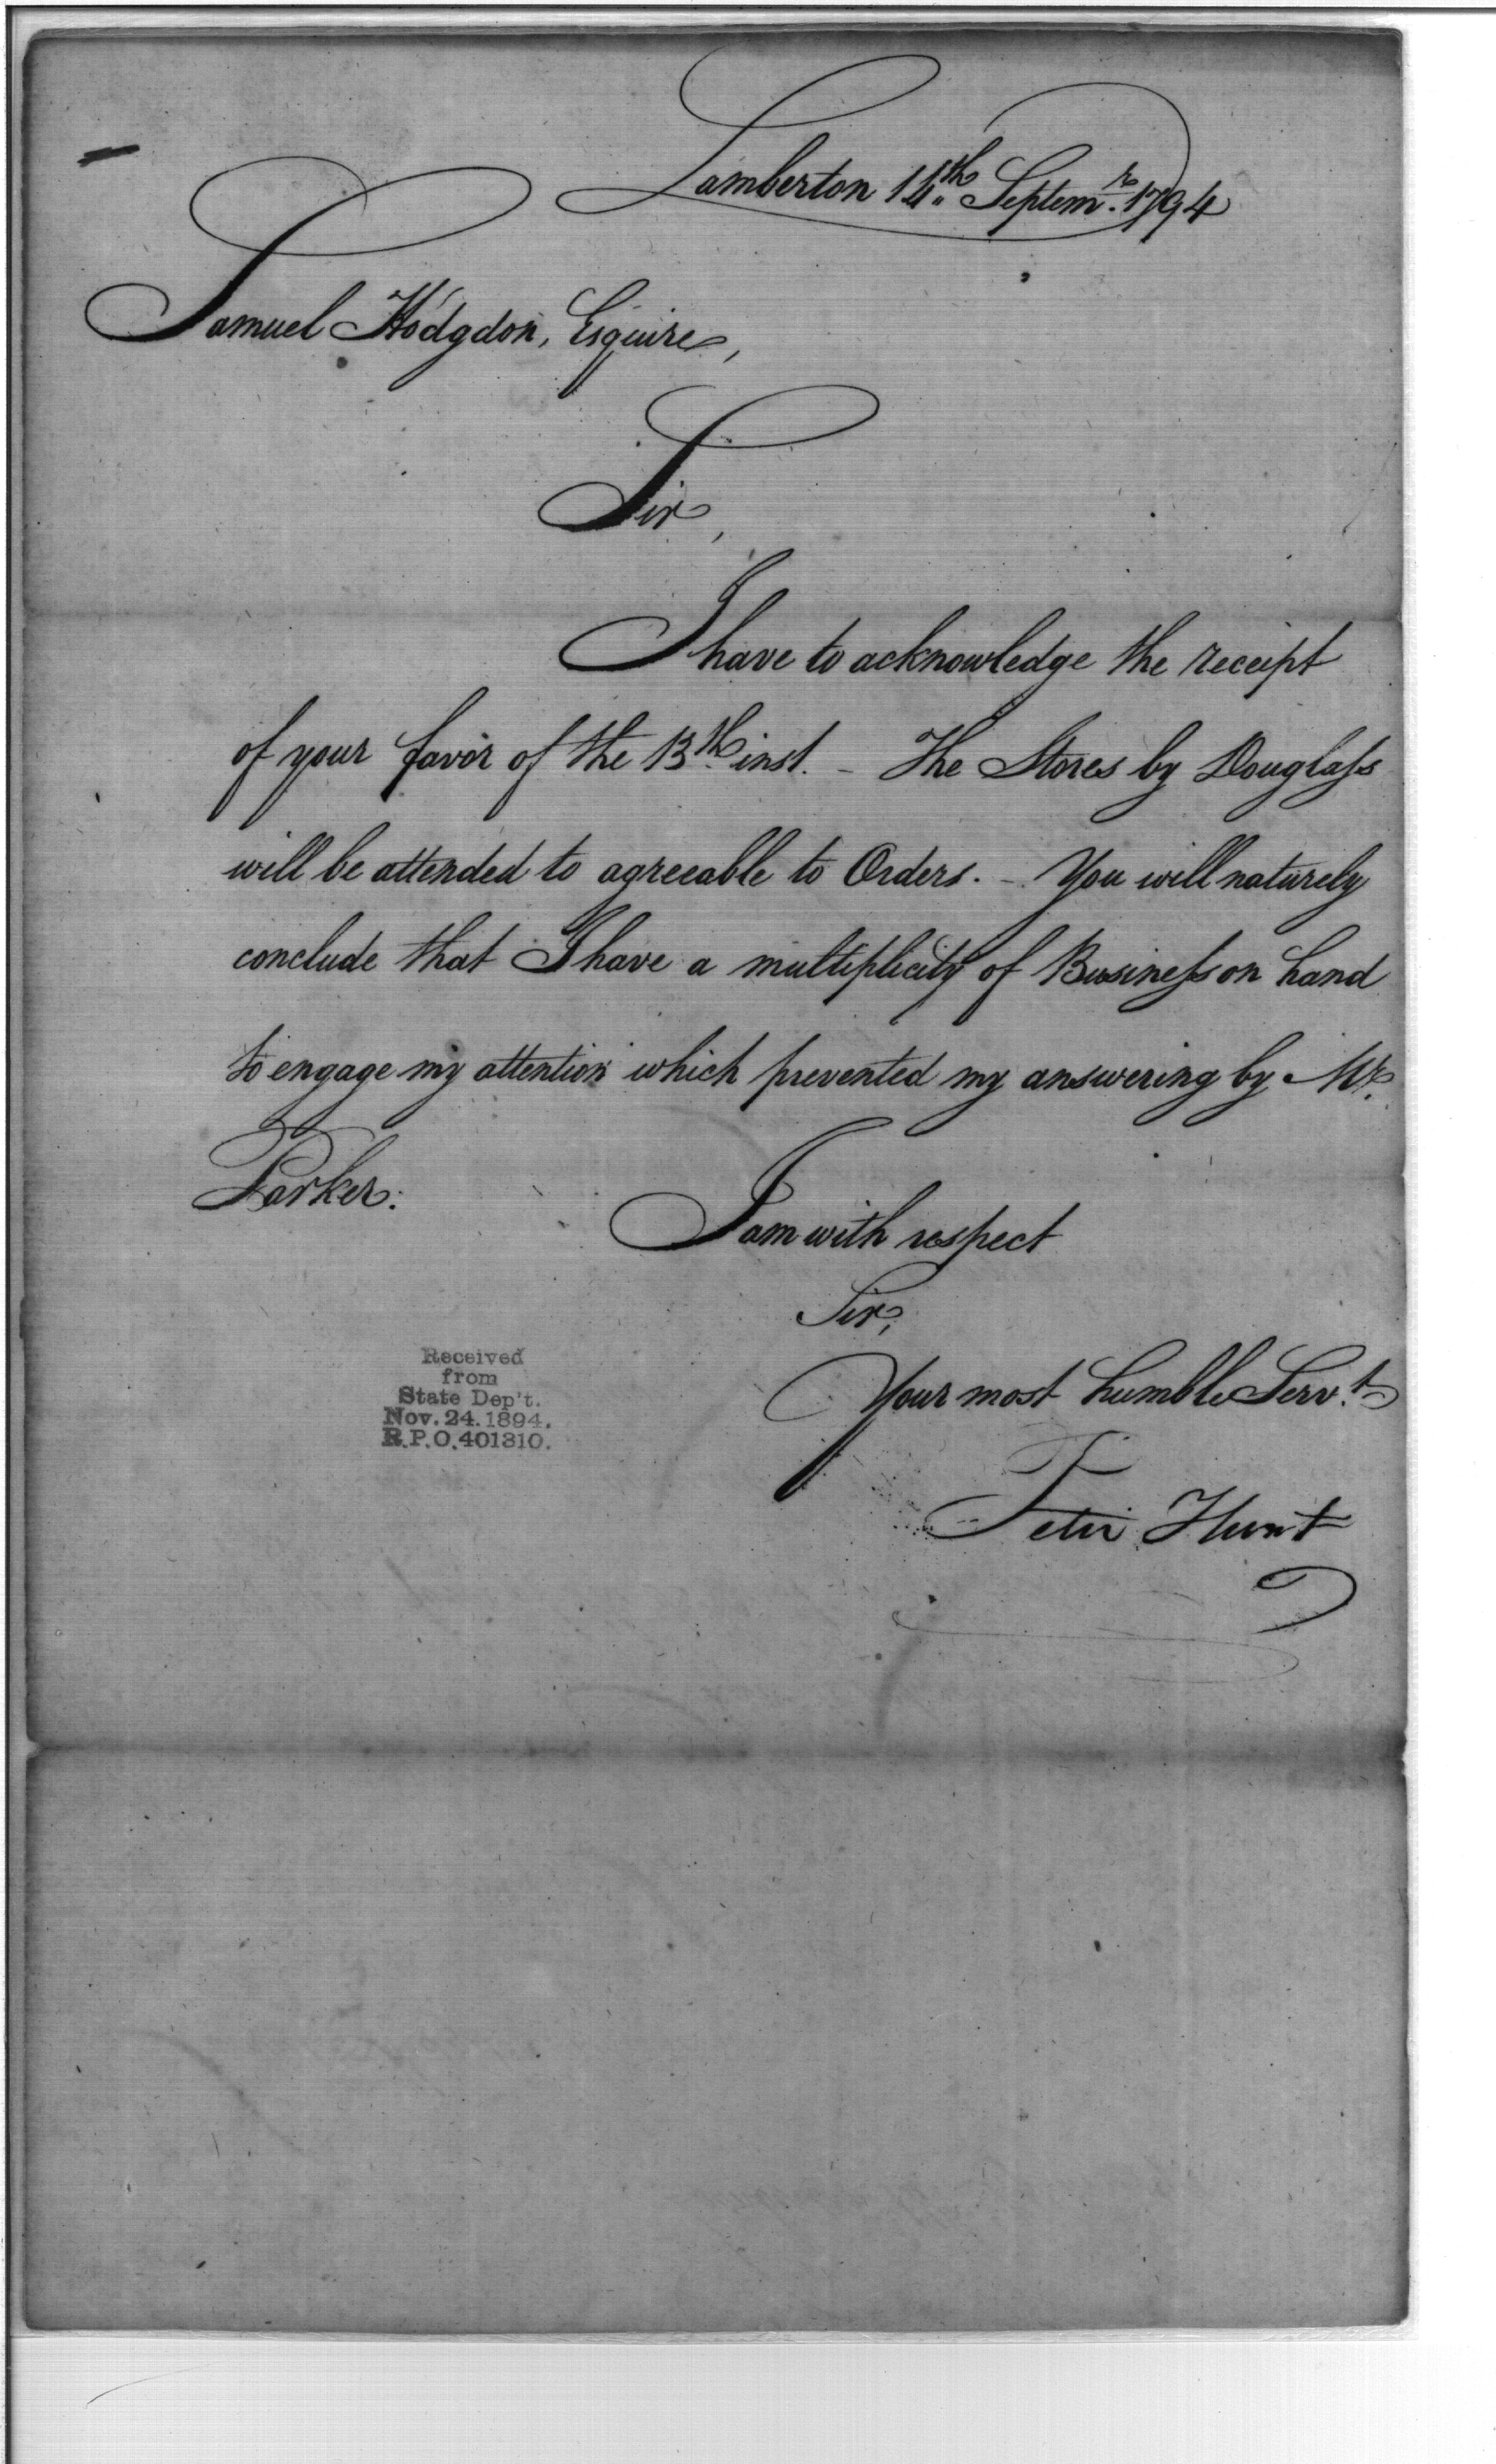 Lamberton 14th Septemr. 1794
Samuel Hodgdon, Esquire,
Sir,
I have to acknowledge the receipt
of your favor of the 13th inst. - The Stores by Douglass
will be attended to agreeable to Orders. - You will naturely
conclude that I have a multiplicity of Business on hand
to engage my attention which prevented my answering by Mr.
Parker.
I am with respect
Sir,
Your most humble Servt.
Peter Hunt
Received
from
State Dep't.
Nov. 24. 1894.
R.P.O. 401310.